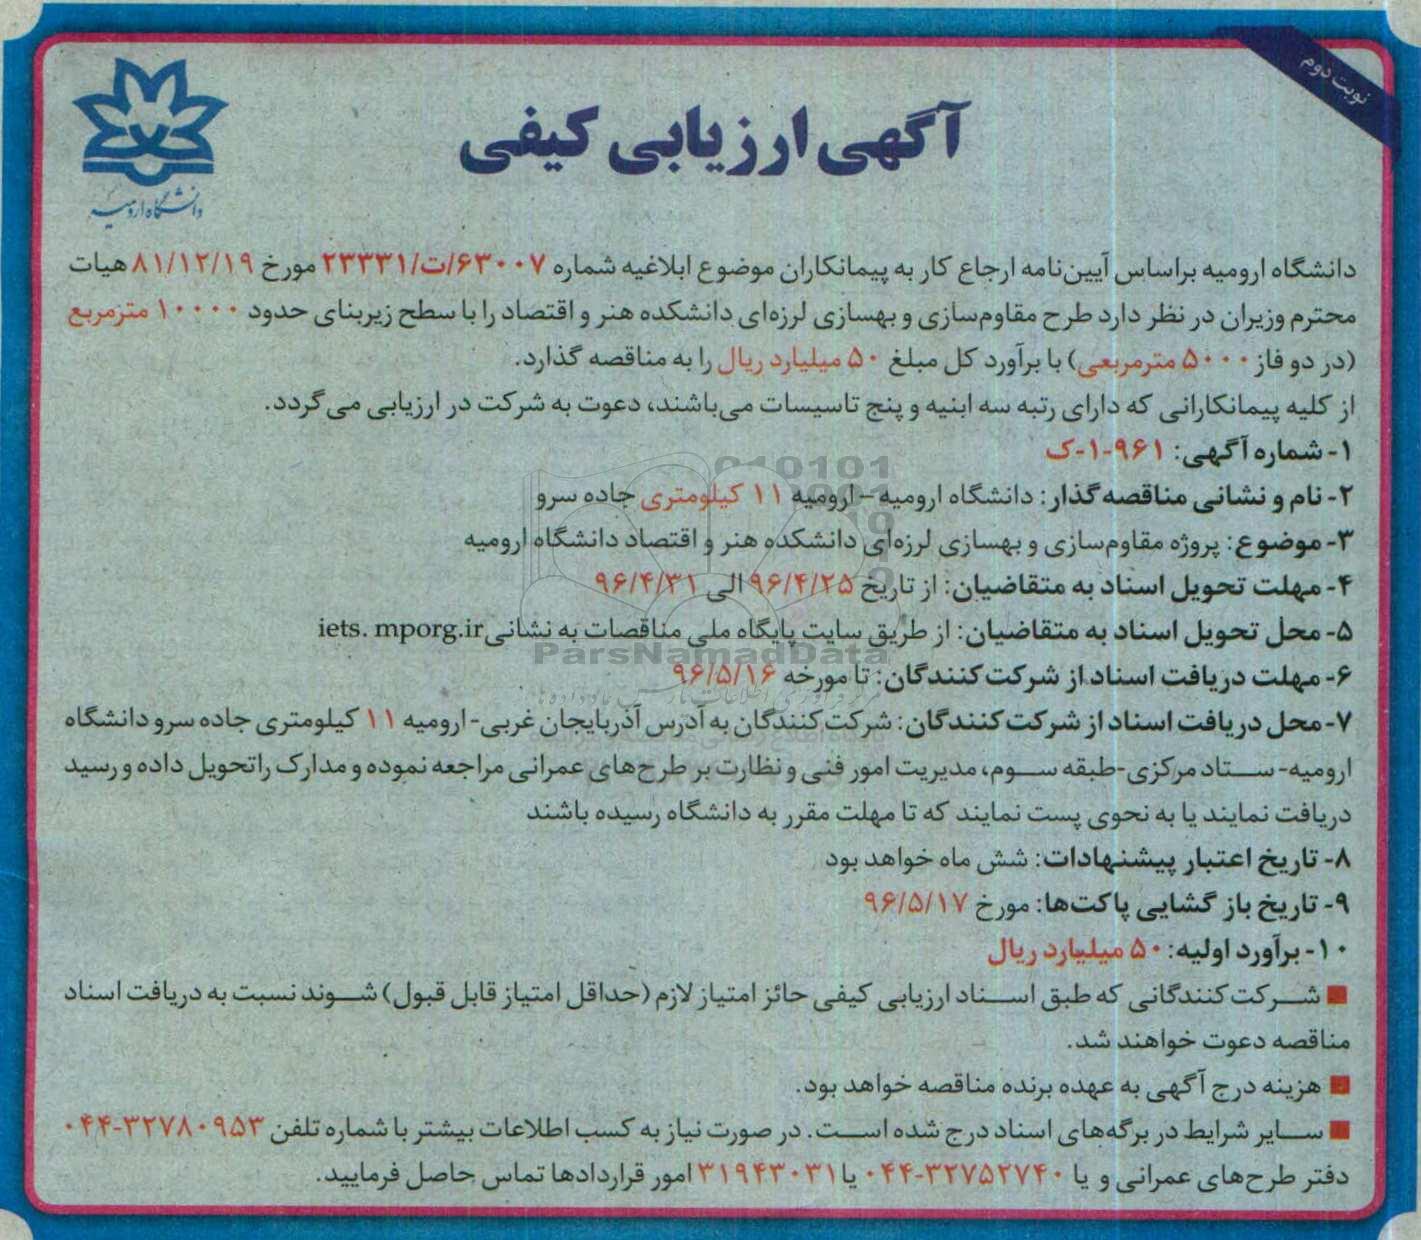 نوبت دوم
آگهی ارزیابی کیفی
دانشگاه ارومیه
دانشگاه ارومیه براساس آیین‌نامه ارجاع کار به پیمانکاران موضوع ابلاغیه شماره ۶۳۰۰۷/ت/۲۳۳۳۱ مورخ ۸۱/۱۲/۱۹ هیات
محترم وزیران در نظر دارد طرح مقاوم‌سازی و بهسازی لرزه‌ای دانشکده هنر و اقتصاد را با سطح زیربنای حدود ۱۰۰۰۰ مترمربع
(در دو فاز ۵۰۰۰ مترمربعی) با برآورد کل مبلغ ۵۰ میلیارد ریال را به مناقصه گذارد.
از کلیه پیمانکارانی که دارای رتبه سه ابنیه و پنج تاسیسات می‌باشند، دعوت به شرکت در ارزیابی می‌گردد.
۱- شماره آگهی: ۹۶۱-۱-ک
۲- نام و نشانی مناقصه‌گذار: دانشگاه ارومیه - ارومیه ۱۱ کیلومتری جاده سرو
۳- موضوع: پروژه مقاوم‌سازی و بهسازی لرزه‌ای دانشکده هنر و اقتصاد دانشگاه ارومیه
۴- مهلت تحویل اسناد به متقاضیان: از تاریخ ۹۶/۴/۲۵ الی ۹۶/۴/۳۱
۵- محل تحویل اسناد به متقاضیان: از طریق سایت پایگاه ملی مناقصات به نشانی iets. mporg.ir
ParsNamadData
۶- مهلت دریافت اسناد از شرکت‌کنندگان: تا مورخه ۹۶/۵/۱۶
۷- محل دریافت اسناد از شرکت‌کنندگان: شرکت‌کنندگان به آدرس آذربایجان غربی- ارومیه ۱۱ کیلومتری جاده سرو دانشگاه
ارومیه- ستاد مرکزی-طبقه سوم، مدیریت امور فنی و نظارت بر طرح‌های عمرانی مراجعه نموده و مدارک را تحویل داده و رسید
دریافت نمایند یا به نحوی پست نمایند که تا مهلت مقرر به دانشگاه رسیده باشند
۸- تاریخ اعتبار پیشنهادات: شش ماه خواهد بود
۹- تاریخ باز گشایی پاکت‌ها: مورخ ۹۶/۵/۱۷
۱۰- برآورد اولیه: ۵۰ میلیارد ریال
■ شرکت‌کنندگانی که طبق اسناد ارزیابی کیفی حائز امتیاز لازم (حداقل امتیاز قابل قبول) شوند نسبت به دریافت اسناد
مناقصه دعوت خواهند شد.
■ هزینه درج آگهی به عهده برنده مناقصه خواهد بود.
■ سایر شرایط در برگه‌های اسناد درج شده است. در صورت نیاز به کسب اطلاعات بیشتر با شماره تلفن ۰۴۴-۳۲۷۸۰۹۵۳
دفتر طرح‌های عمرانی و یا ۰۴۴-۳۲۷۵۲۷۴۰ یا ۳۱۹۴۳۰۳۱ امور قراردادها تماس حاصل فرمایید.